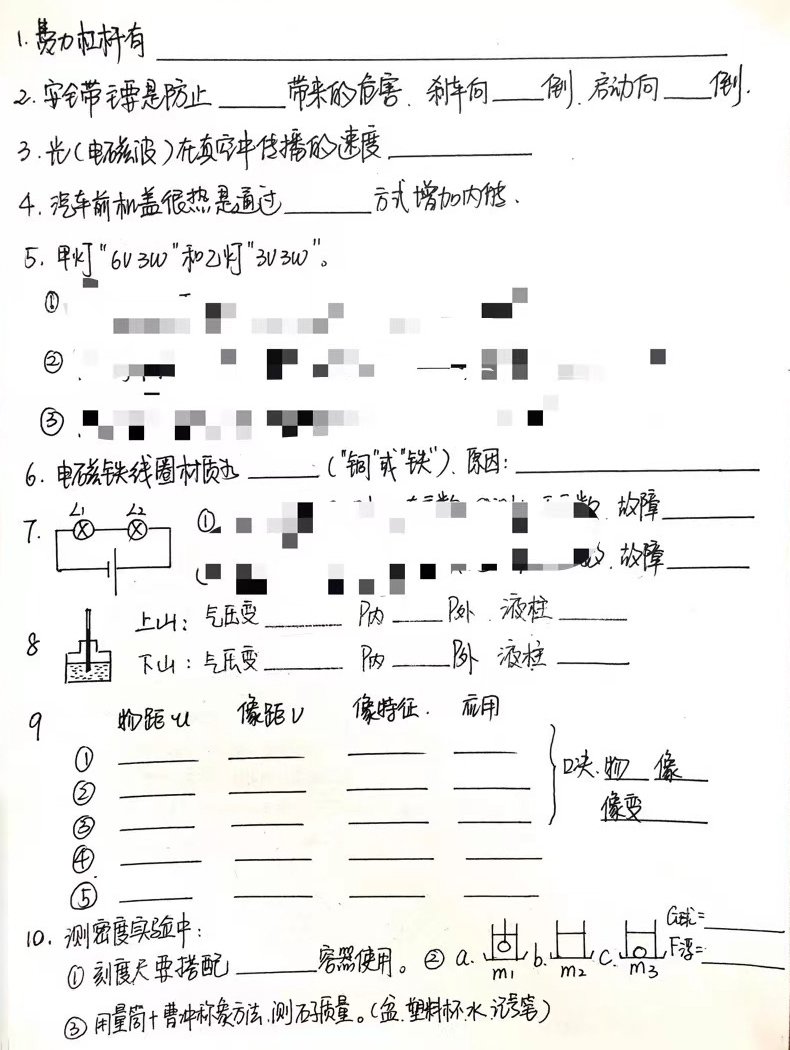 1. 费力杠杆有
2. 安全带主要是防止 带来的危害、刹车向 倒、启动向 倒.
3. 光(电磁波)在真空中传播的速度
4. 汽车前机盖很热是通过 方式增加内能.
5. 甲灯"6V 3W"和乙灯"3V 3W"。
①
②
③
6. 电磁铁线圈材质为 ("铜"或"铁")、原因:
7. L1 L2 ① 故障
故障
8 上山: 气压变 P内 P外 液柱
下山: 气压变 P内 P外 液柱
9 物距u 像距v 像特征. 应用
①
② 口决. 物 像
③ 像变
④
⑤
10. 测密度实验中:
① 刻度尺要搭配 容器使用。 ② a. m1 b. m2 c. m3 G球= F浮=
③ 用量筒+曹冲称象方法、测石子质量。(盆.塑料杯.水.记号笔)